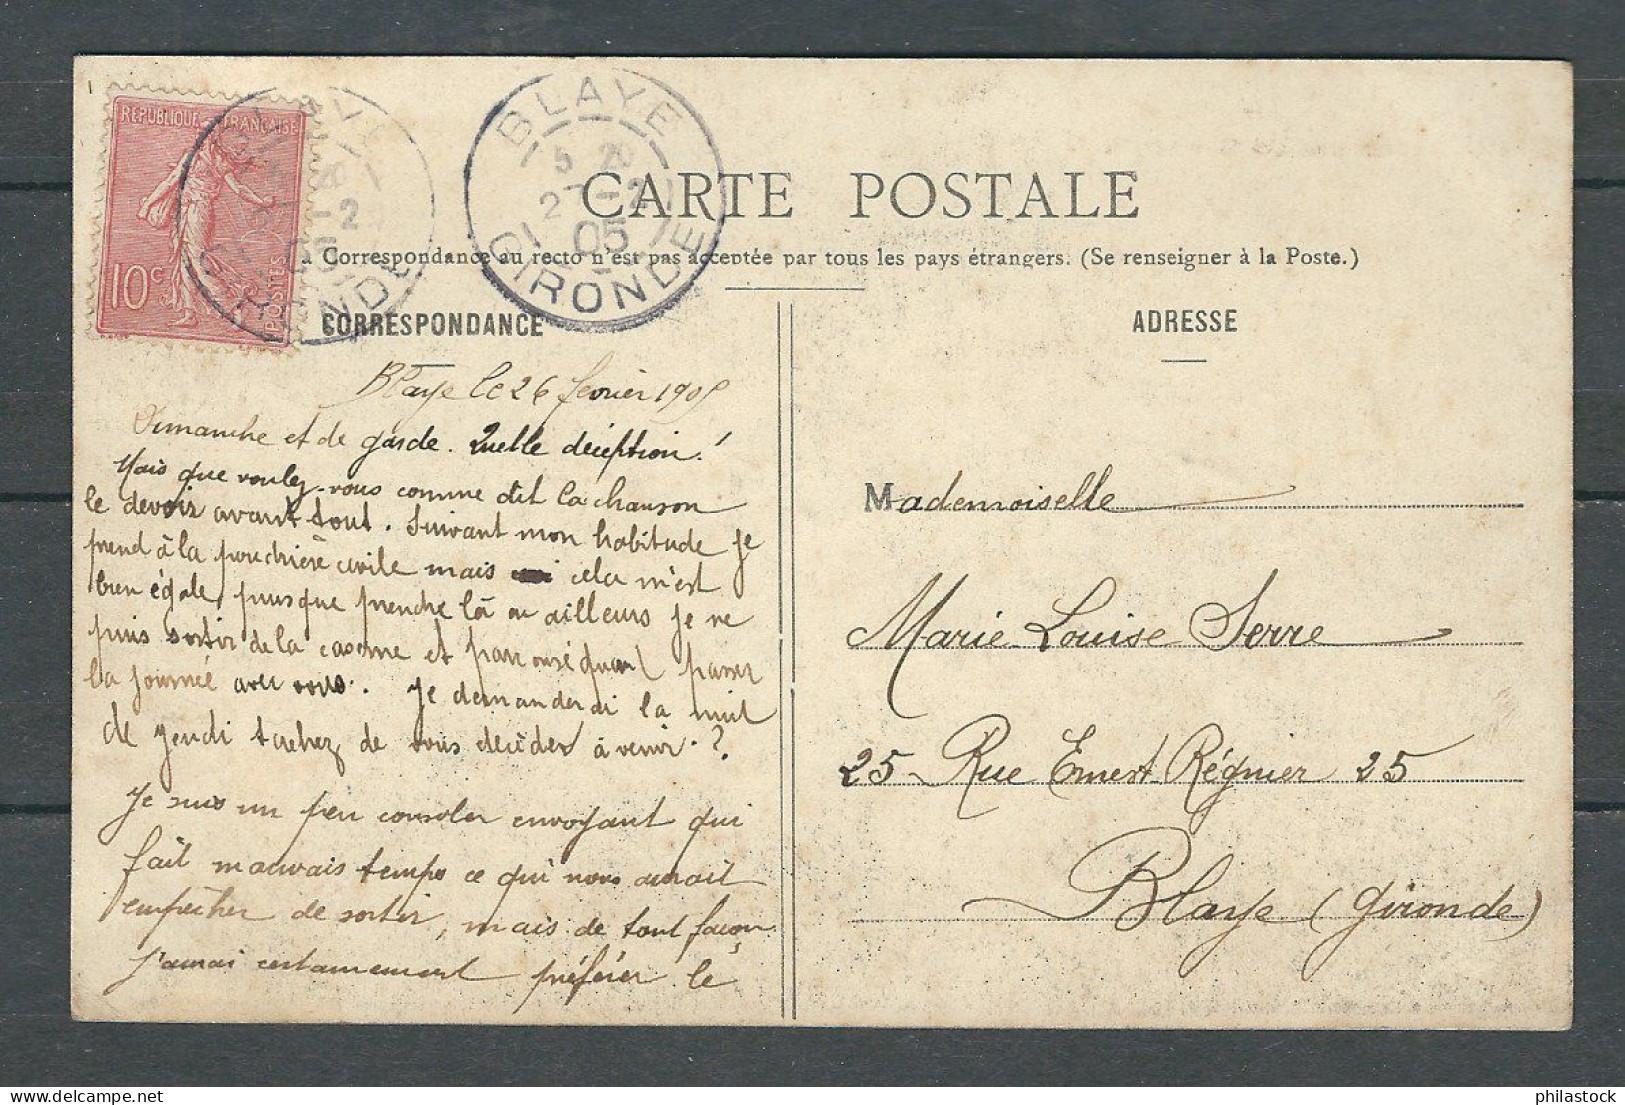 REPUBLIQUE FRANÇAISE
10c
POSTES
BLAYE
5 20
27 -2
05
GIRONDE
CARTE POSTALE
a Correspondance au recto n'est pas acceptée par tous les pays étrangers. (Se renseigner à la Poste.)
CORRESPONDANCE
ADRESSE
Blaye le 26 février 1905
Dimanche et de garde. Quelle déception!
Mais que voulez-vous comme dit la chanson
le devoir avant tout. Suivant mon habitude je
prend à la poudrière civile mais cela m'est
bien égale, puisque prendre là ou ailleurs je ne
puis sortir de la caserne et par conséquent passer
la journée avec vous. Je demanderai la nuit
de jeudi tachez de vous decider à venir.?
Je suis un peu consoler envoyant qui
fait mauvais temps ce qui nous aurait
empêcher de sortir, mais de tout façon
j'aurai certainement préférer le
Mademoiselle
Marie Louise Serre
25 Rue Ernest Régnier 25
Blaye (Gironde)
philastock